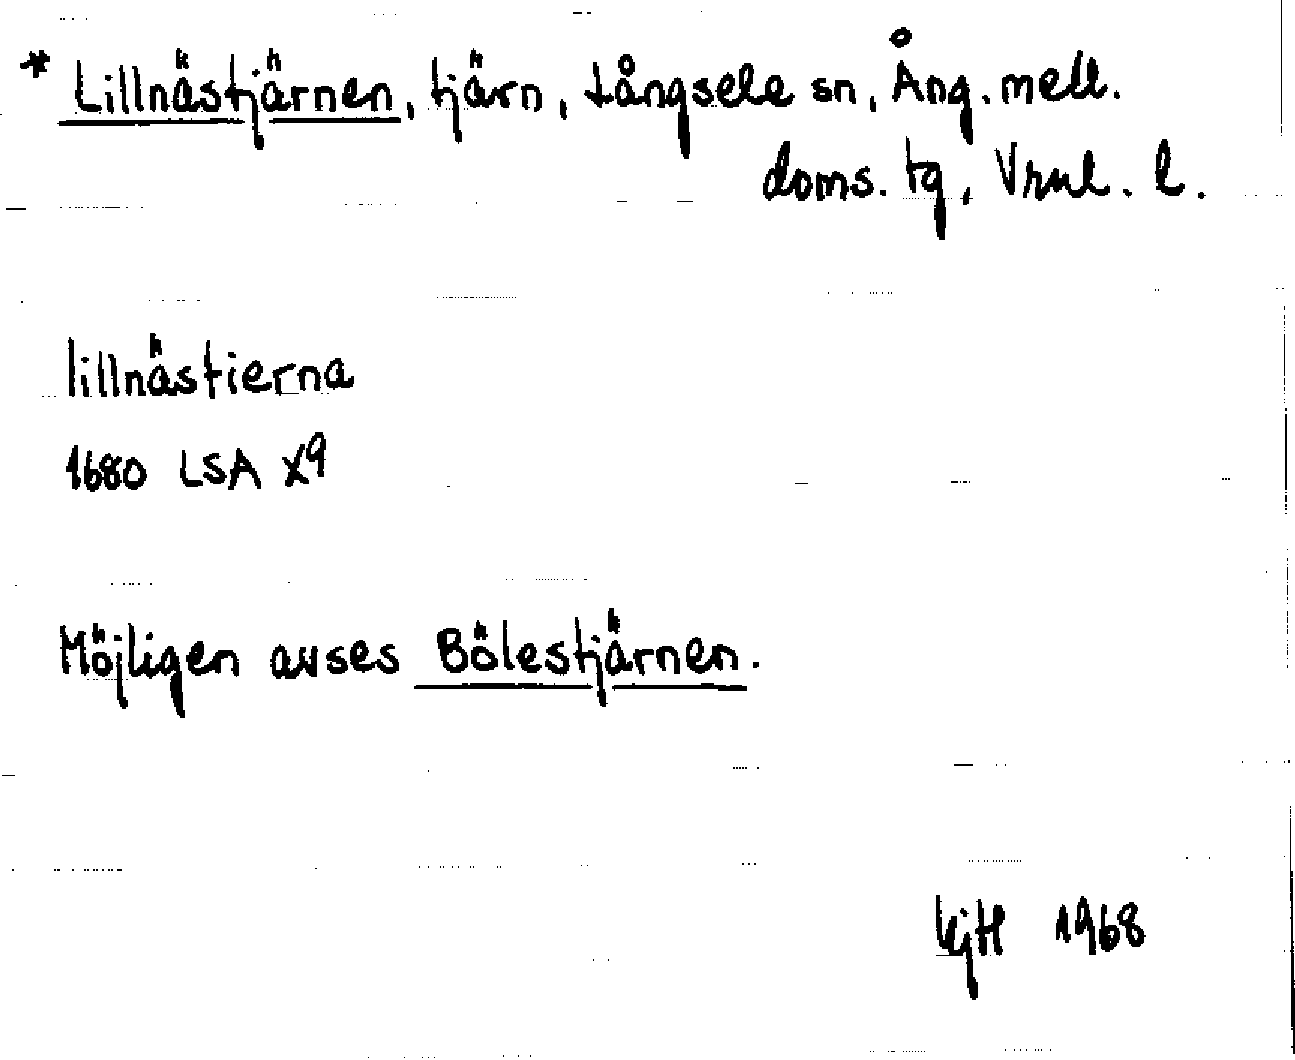 * Lillnästjärnen, tjärn, Långsele sn, Ång. mell.
doms. tg, Vrnl. l.
lillnästierna
1680 LSA X9
Möjligen avses Bölestjärnen.
KjH 1968